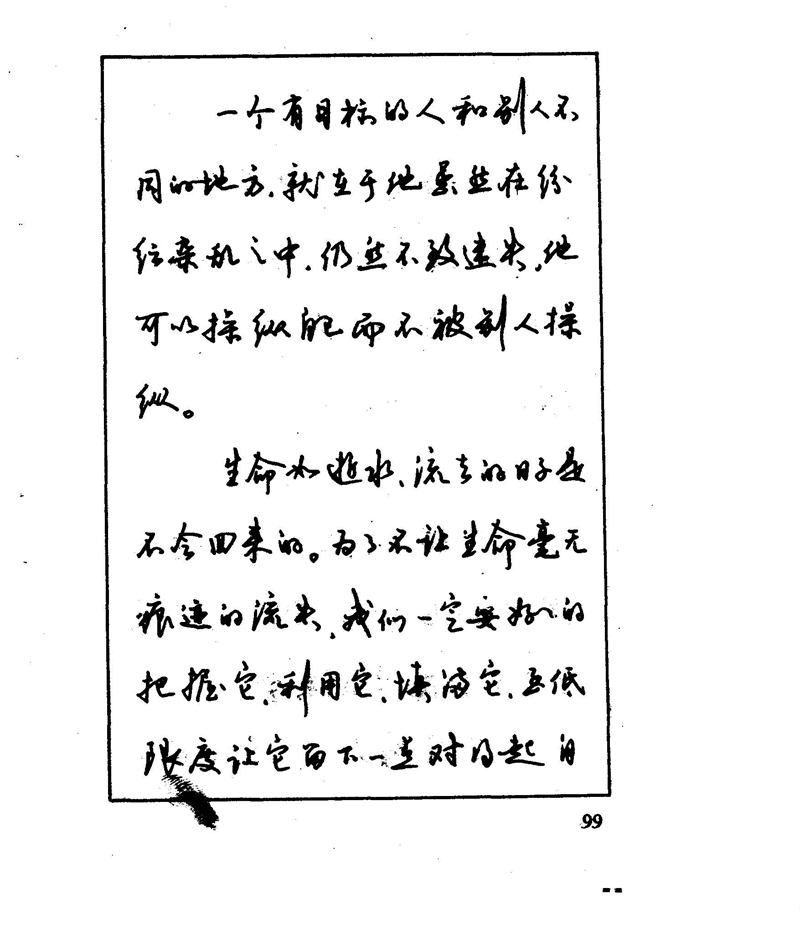 一个有目标的人和别人不
同的地方，就在于他虽然在纷
纭杂乱之中，仍然不致迷失，他
可以操纵自己而不被别人操
纵。
生命如逝水，流去的日子是
不会回来的。为了不让生命毫无
痕迹的流失，我们一定要好好的
把握它，利用它，填满它，至低
限度让它留下一点对得起自
99